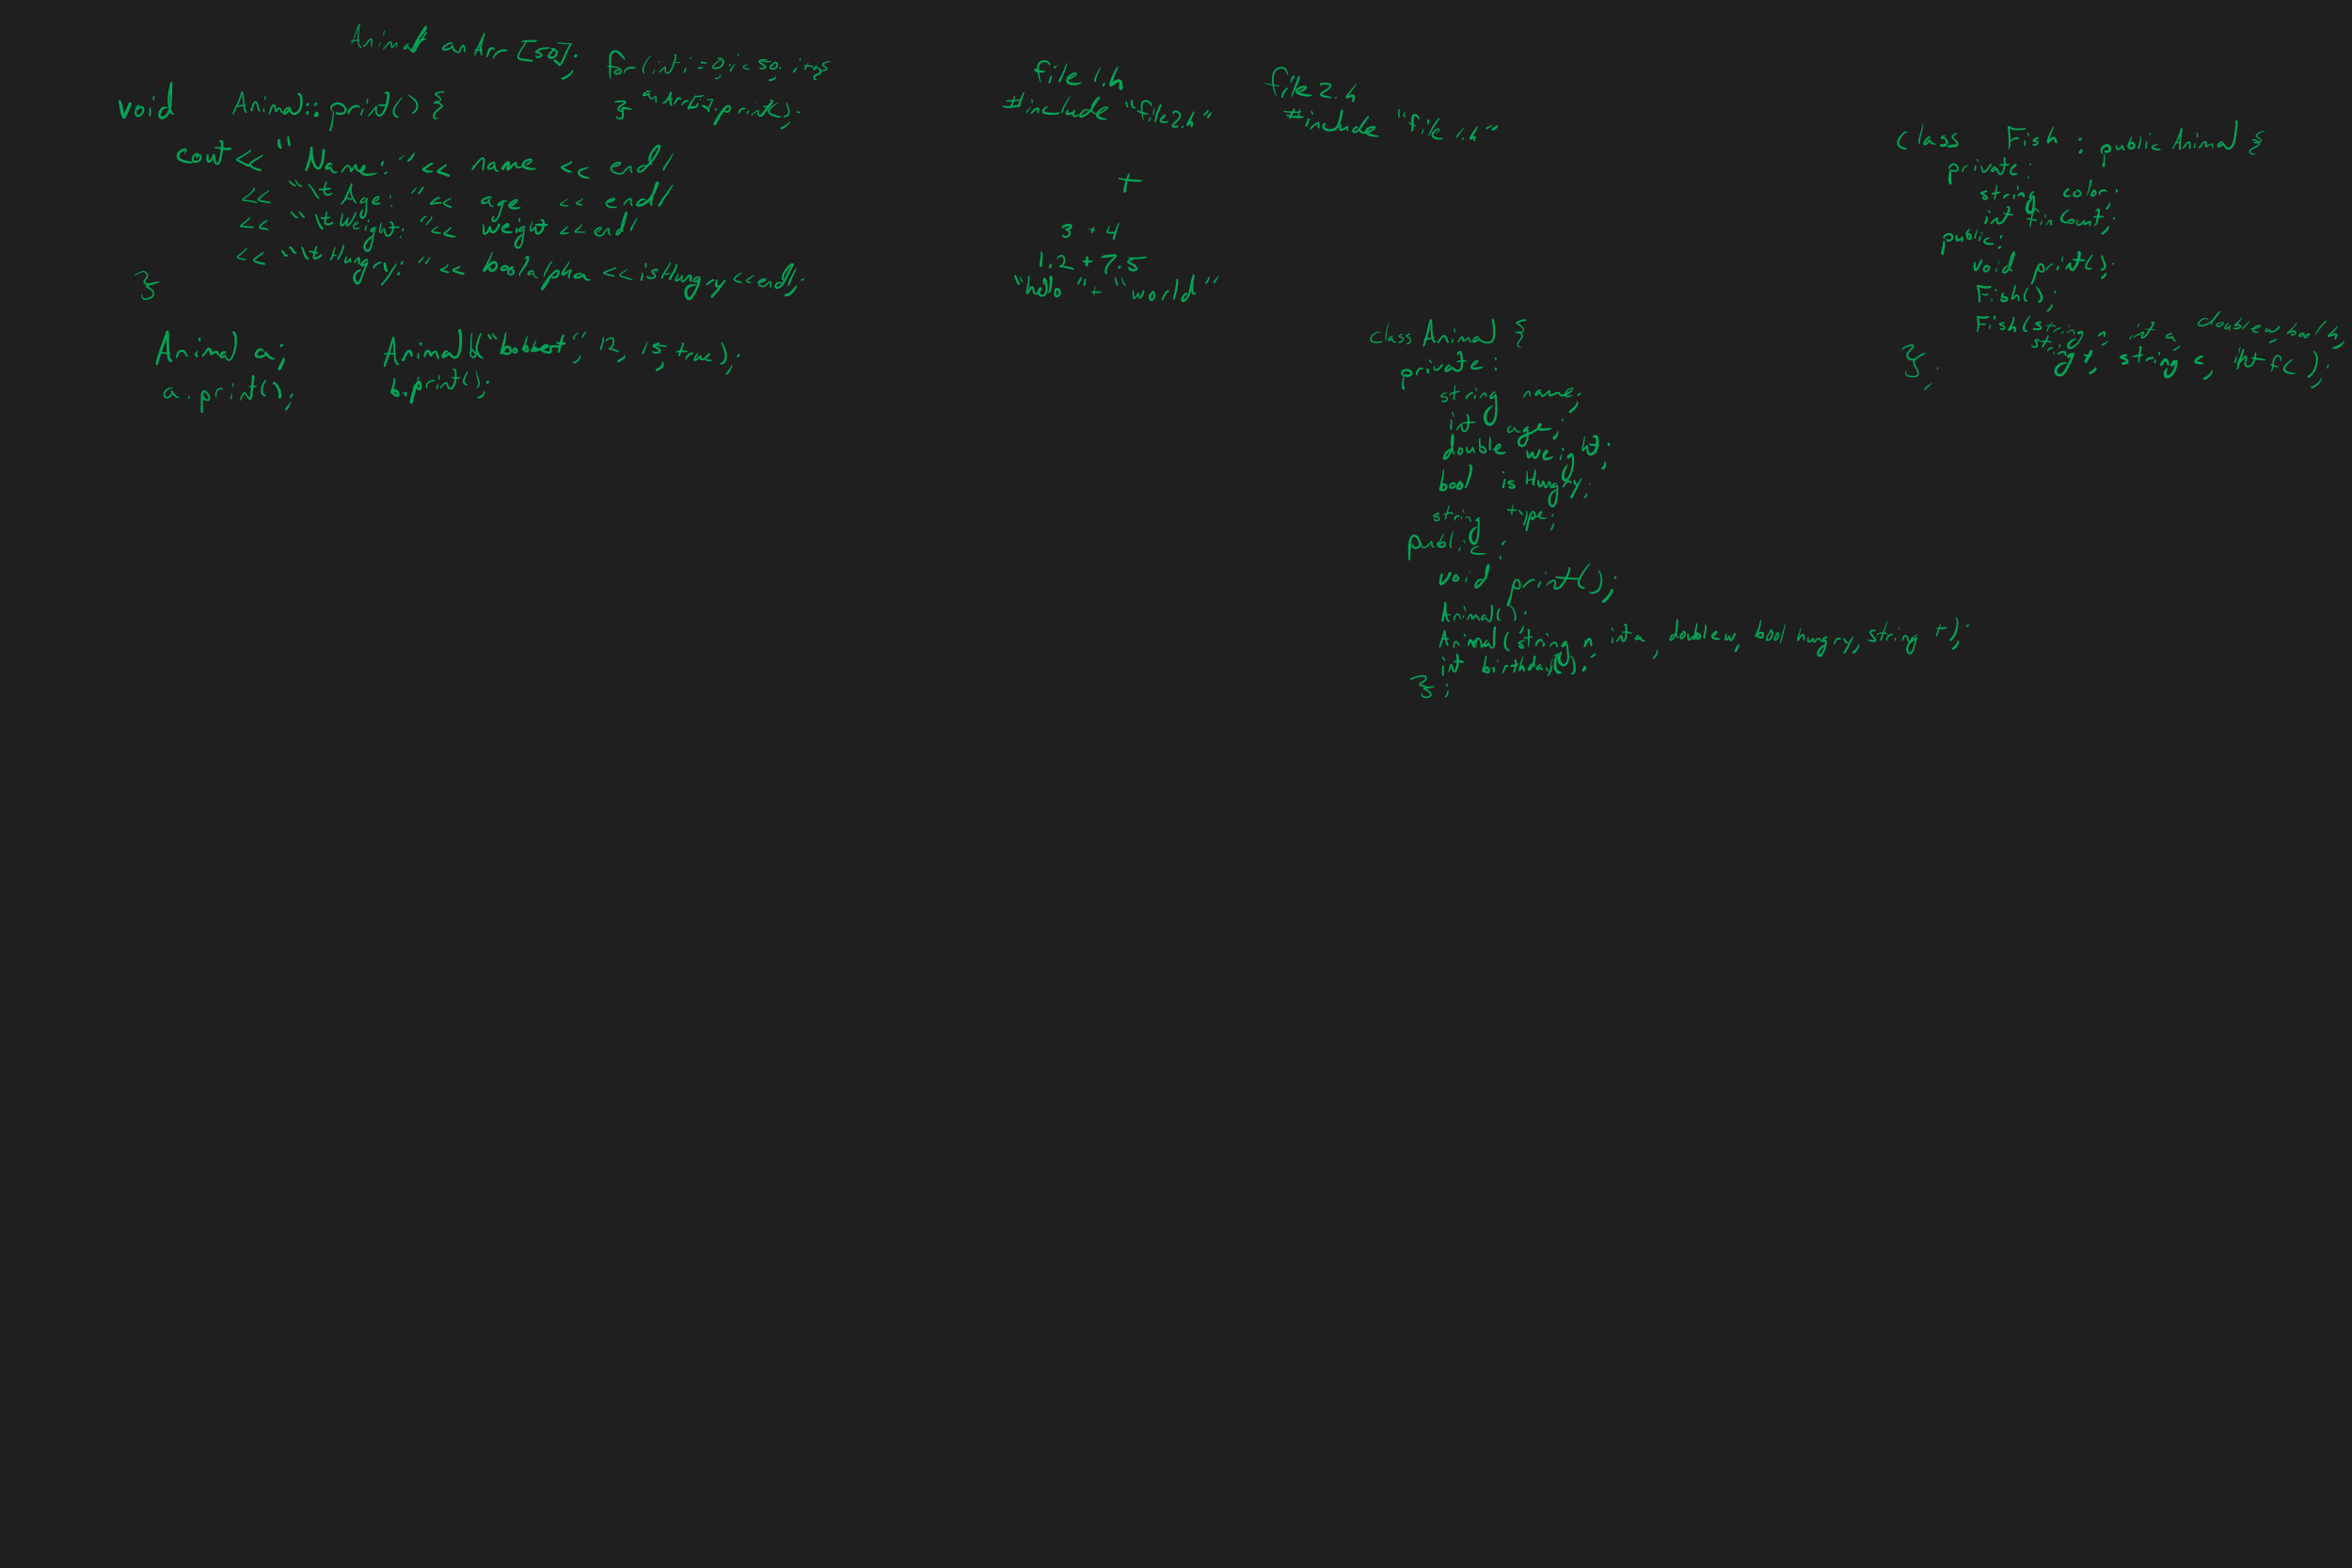 Animal anArr[50];
for(int i=0; i<50; i++){
anArr[i].print();
}
void Animal::print(){
cout<<"Name: "<< name << endl
<< "\tAge: "<< age << endl
<< "\tWeight: "<< weight << endl
<< "\tHungry: "<< boolalpha << isHungry<<endl;
}
Animal a;
a.print();
Animal b("bobbert", 12, 15, true);
b.print();
file1.h
#include "file2.h"
file2.h
#include "file1.h"
+
3 + 4
1.2 + 7.5
"hello" + "world"
class Animal {
private:
string name;
int age;
double weight;
bool isHungry;
string type;
public:
void print();
Animal();
Animal(string n, int a, double w, bool hungry, string t);
int birthday();
};
class Fish : public Animal {
private:
string color;
int finCount;
public:
void print();
Fish();
Fish(string n, int a, double w, bool h,
string t, string c, int fc);
};